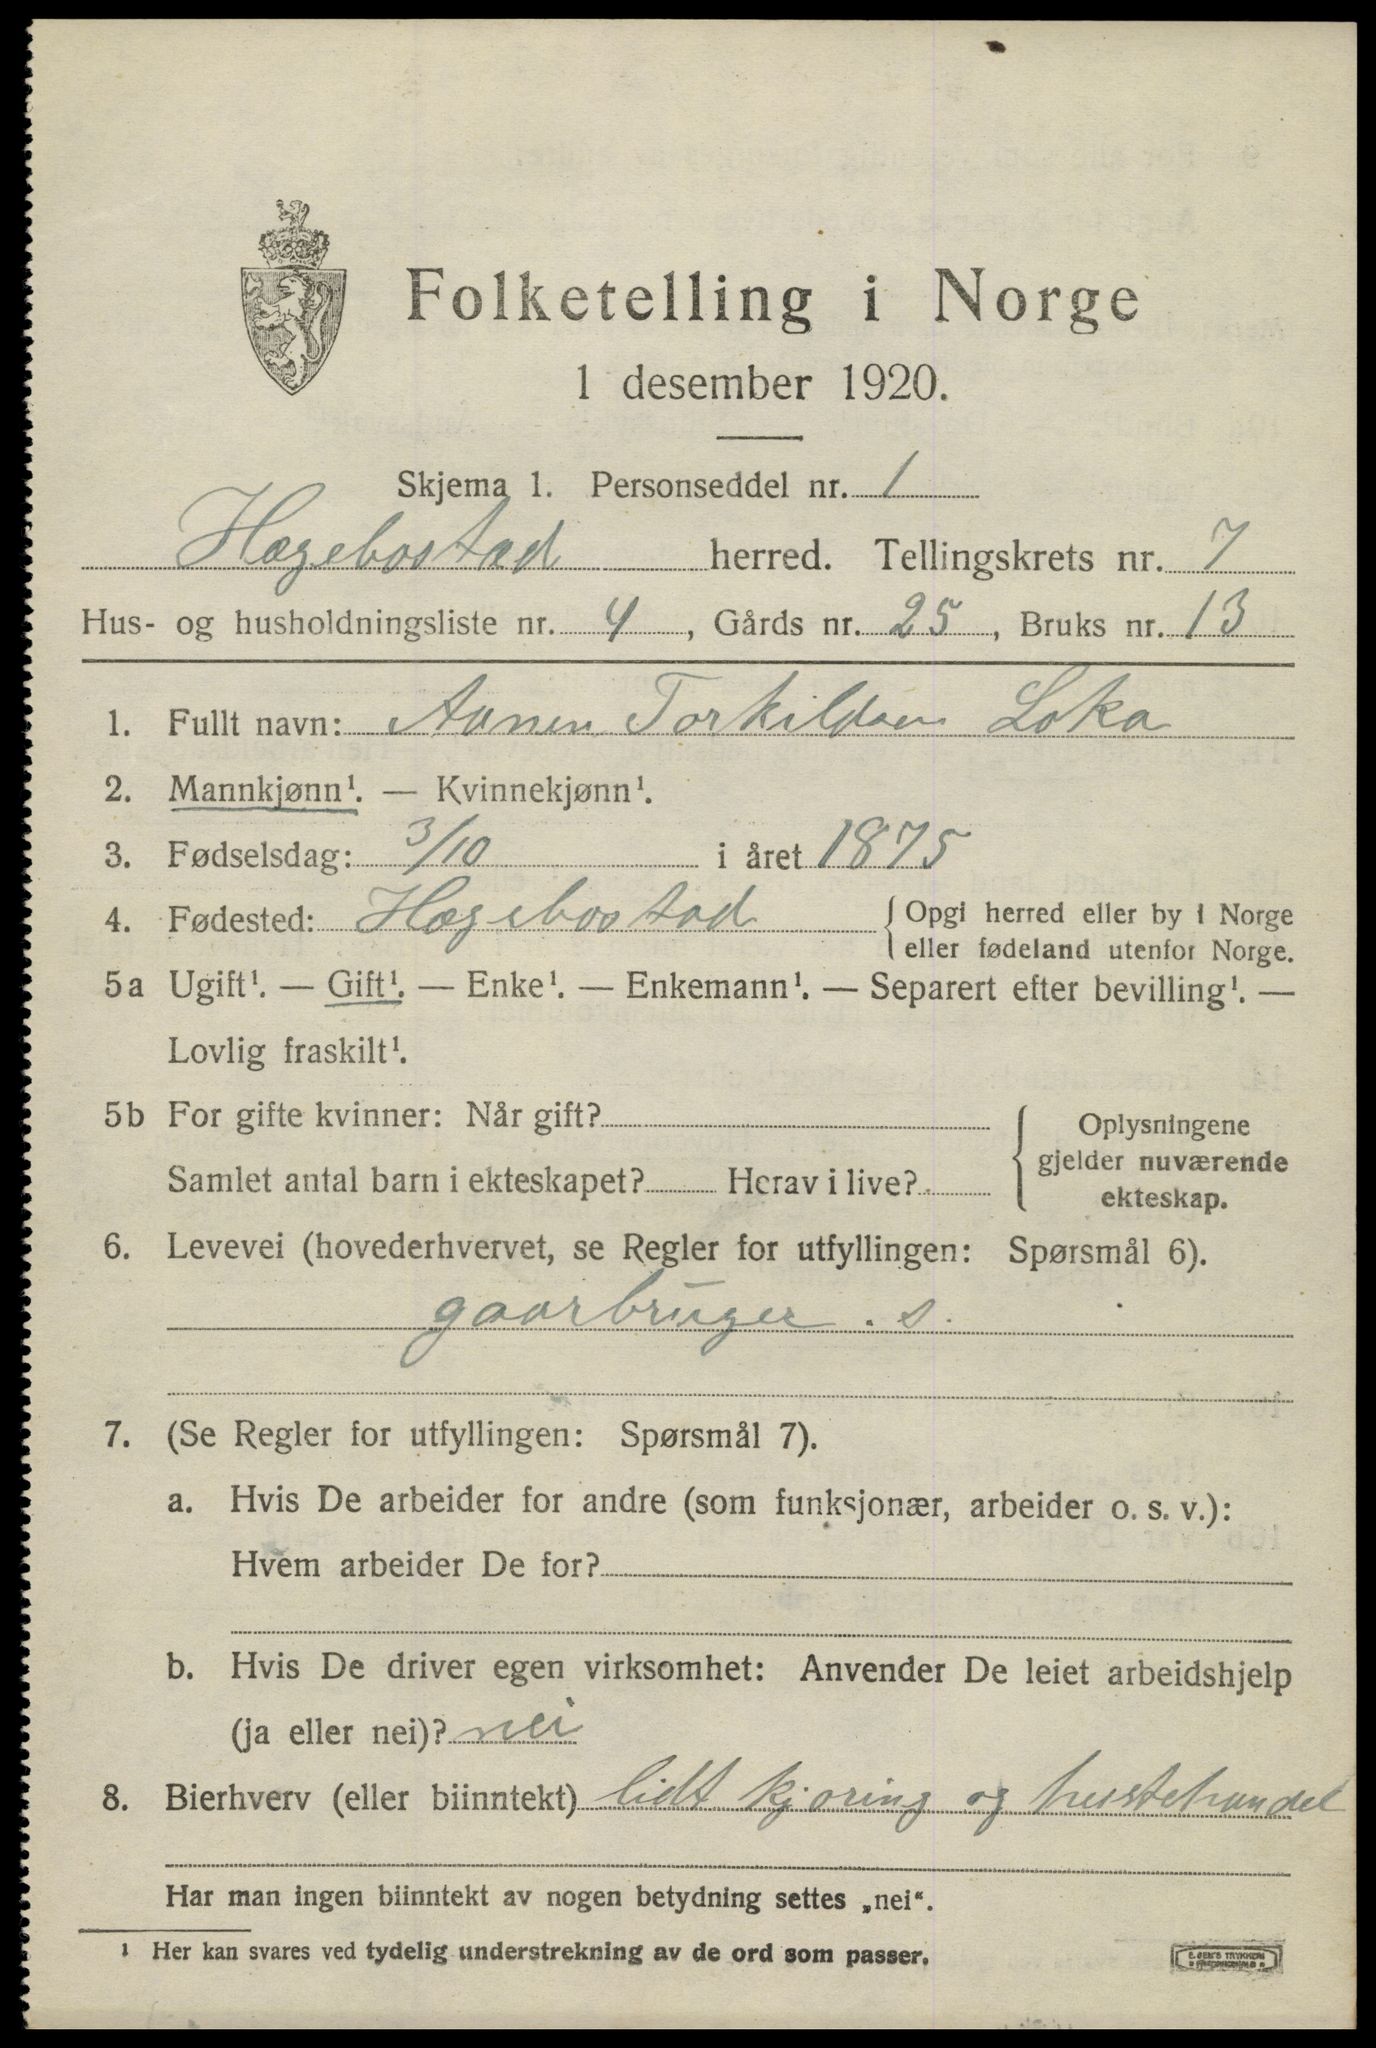 Folketelling i Norge
1 desember 1920.
Skjema 1. Personseddel nr. 1
Hægebostad herred. Tellingskrets nr. 7
Hus- og husholdningsliste nr. 4, Gårds nr. 25, Bruks nr. 13
1. Fullt navn: Aanen Torkildsen Loka
2. Mannkjønn¹. — Kvinnekjønn¹.
3. Fødselsdag: 3/10 i året 1875
4. Fødested: Hægebostad { Opgi herred eller by i Norge
eller fødeland utenfor Norge.
5a Ugift¹. — Gift¹. — Enke¹. — Enkemann¹. — Separert efter bevilling¹. —
Lovlig fraskilt¹.
5b For gifte kvinner: Når gift?
Samlet antal barn i ekteskapet? Herav i live?
{ Oplysningene
gjelder nuværende
ekteskap.
6. Levevei (hovederhvervet, se Regler for utfyllingen: Spørsmål 6).
gaarbruger . s.
7. (Se Regler for utfyllingen: Spørsmål 7).
a. Hvis De arbeider for andre (som funksjonær, arbeider o. s. v.):
Hvem arbeider De for?
b. Hvis De driver egen virksomhet: Anvender De leiet arbeidshjelp
(ja eller nei)? nei
8. Bierhverv (eller biinntekt) lidt kjøring og hestehandel
Har man ingen biinntekt av nogen betydning settes „nei“.
¹ Her kan svares ved tydelig understrekning av de ord som passer.